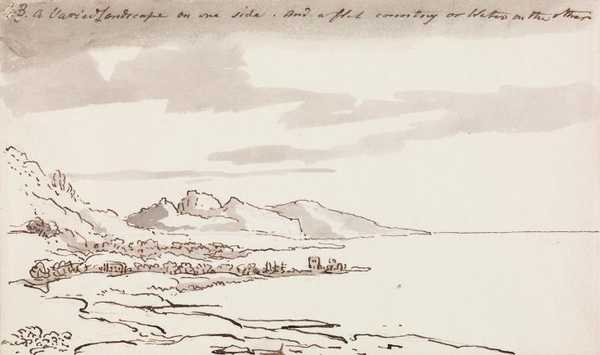 13. A Varied Landscape on one side. And a flat country or Water on the other